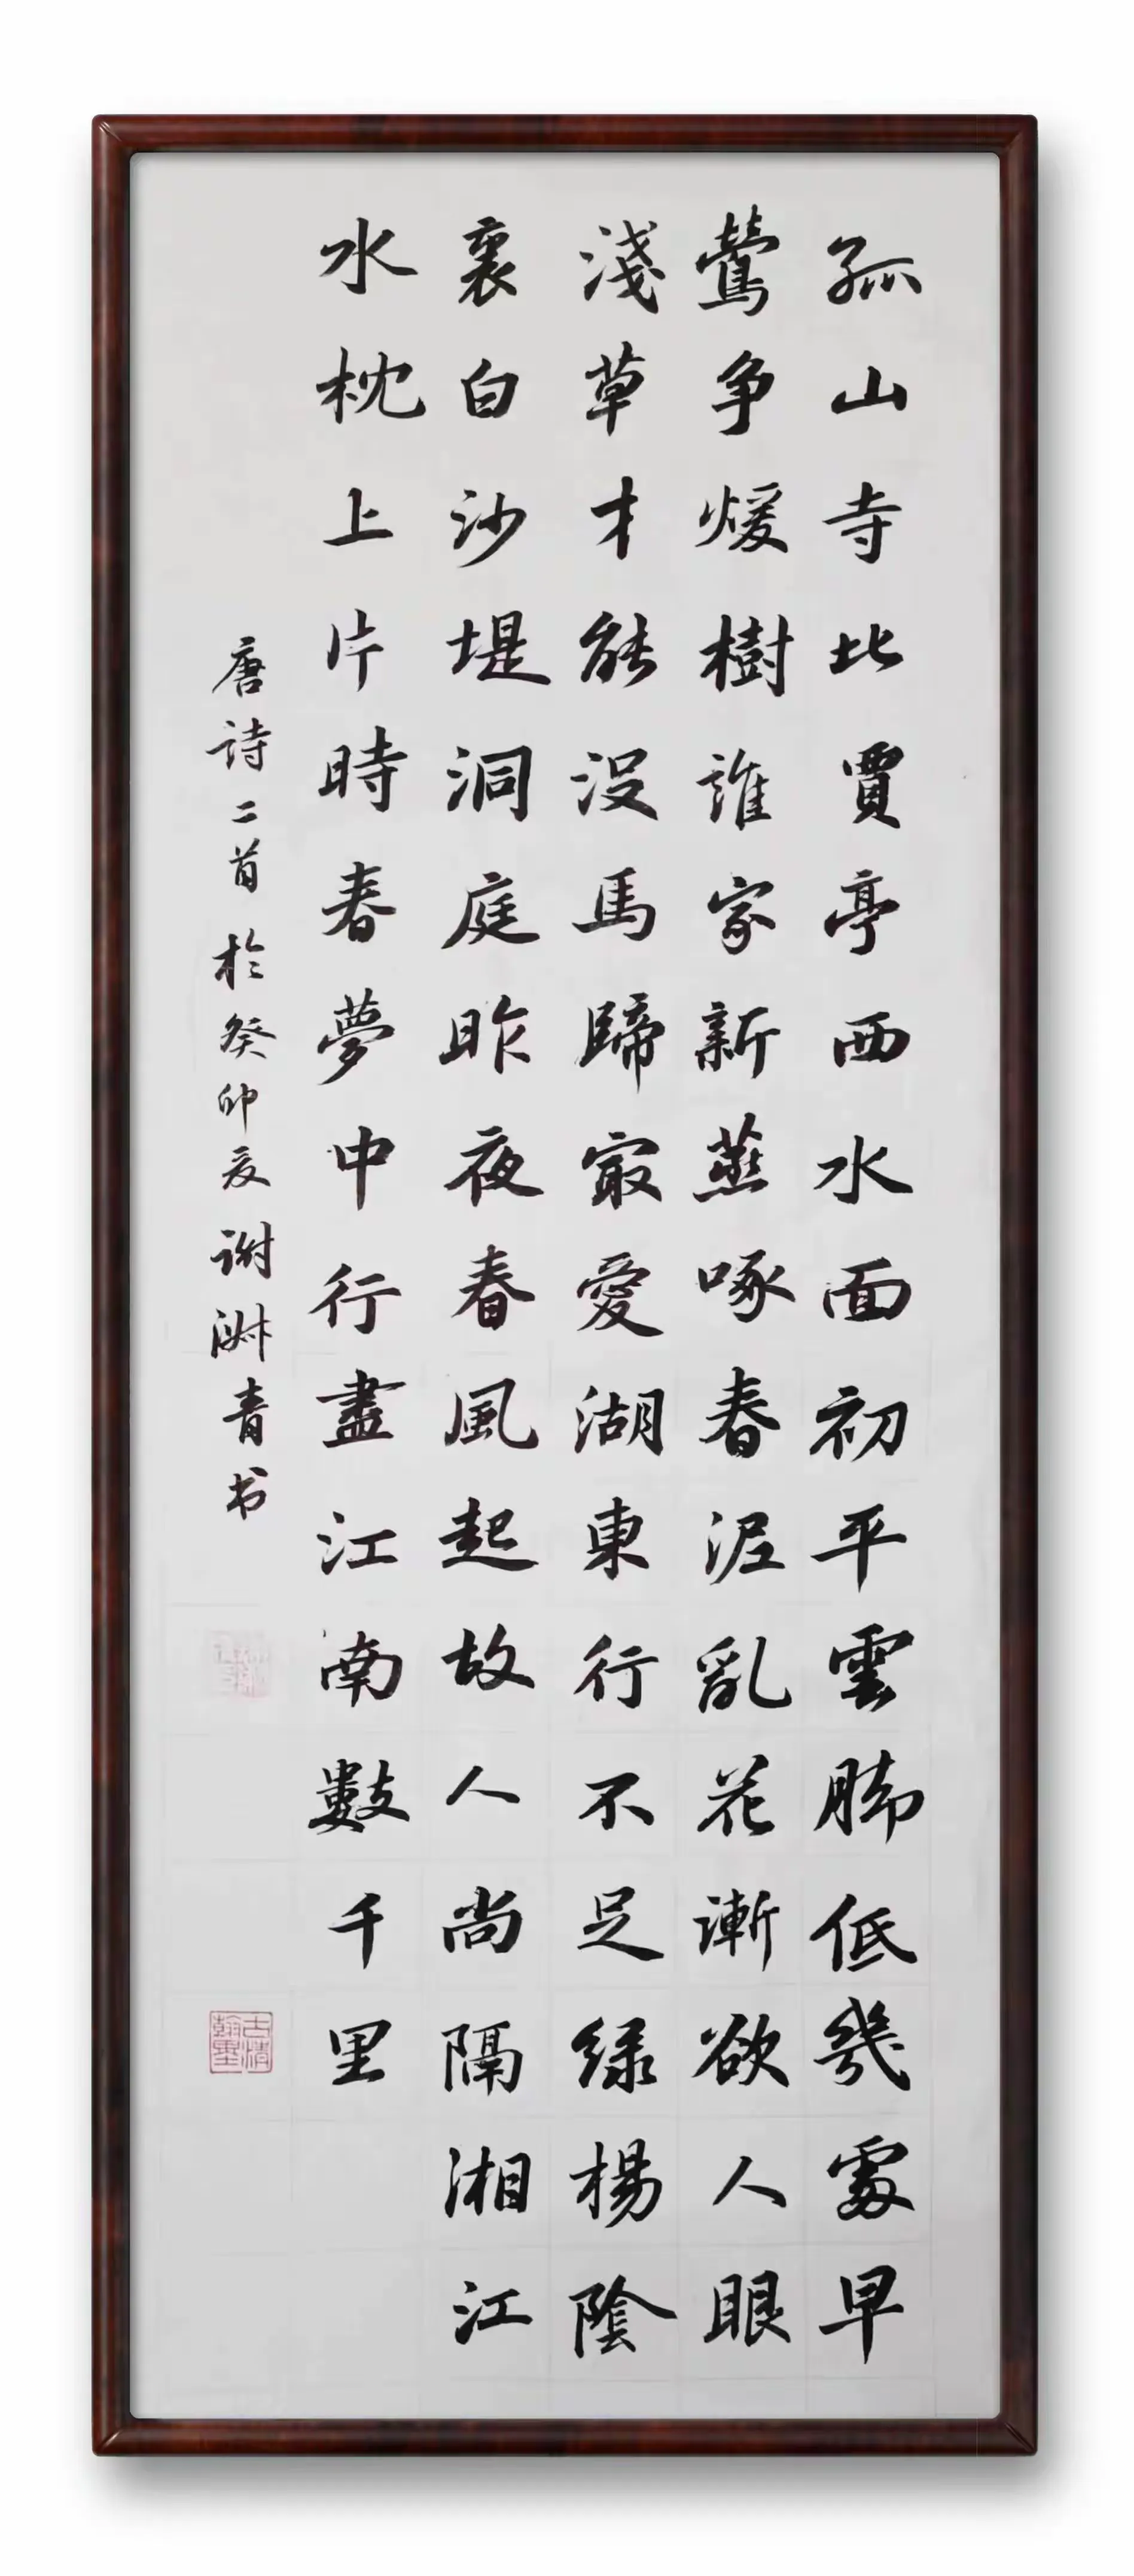 孤山寺北賈亭西水面初平雲腳低幾處早
鶯争煖樹誰家新燕啄春泥亂花漸欲人眼
淺草才能没馬蹄最愛湖東行不足緑楊陰
裏白沙堤洞庭昨夜春風起故人尚隔湘江
水枕上片時春夢中行盡江南數千里
唐詩二首於癸卯夏谢淑青书